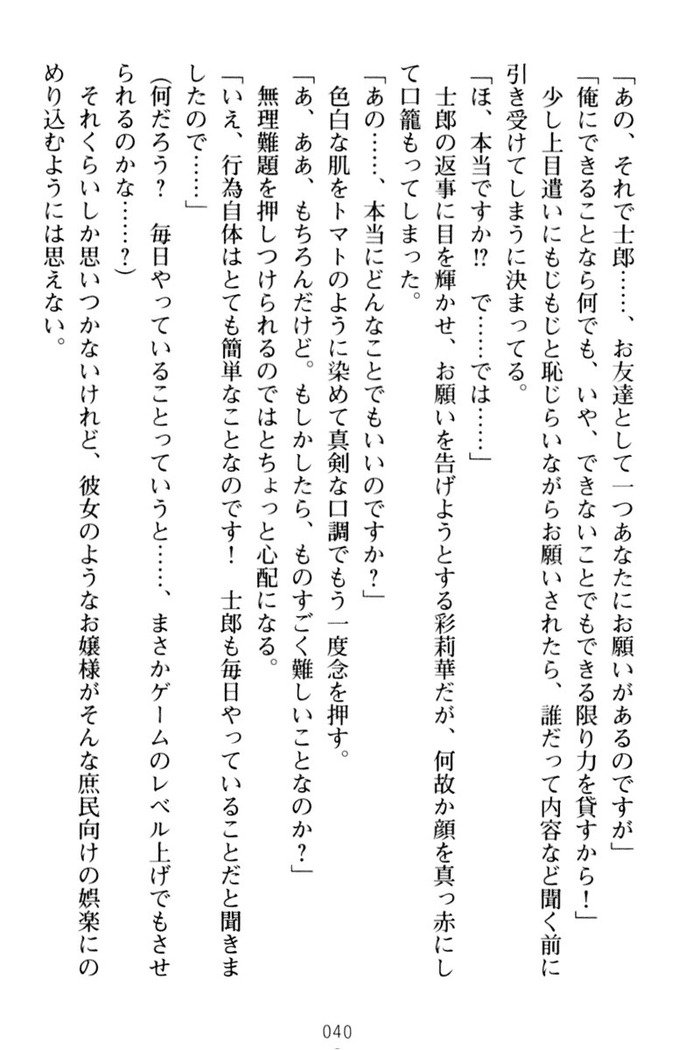 「あの、それで士郎……、お友達として一つあなたにお願いがあるのですが」
「俺にできることなら何でも、いや、できないことでもできる限り力を貸すから！」
　少し上目遣いにもじもじと恥じらいながらお願いされたら、誰だって内容など聞く前に
引き受けてしまうに決まってる。
「ほ、本当ですか!?　で……では……」
　士郎の返事に目を輝かせ、お願いを告げようとする彩莉華だが、何故か顔を真っ赤にし
て口籠もってしまった。
「あの……、本当にどんなことでもいいのですか？」
　色白な肌をトマトのように染めて真剣な口調でもう一度念を押す。
「あ、ああ、もちろんだけど。もしかしたら、ものすごく難しいことなのか？」
　無理難題を押しつけられるのではとちょっと心配になる。
「いえ、行為自体はとても簡単なことなのです！　士郎も毎日やっていることだと聞きま
したので……」
（何だろう？　毎日やっていることっていうと……、まさかゲームのレベル上げでもさせ
られるのかな……？）
　それくらいしか思いつかないけれど、彼女のようなお嬢様がそんな庶民向けの娯楽にの
めり込むようには思えない。
040